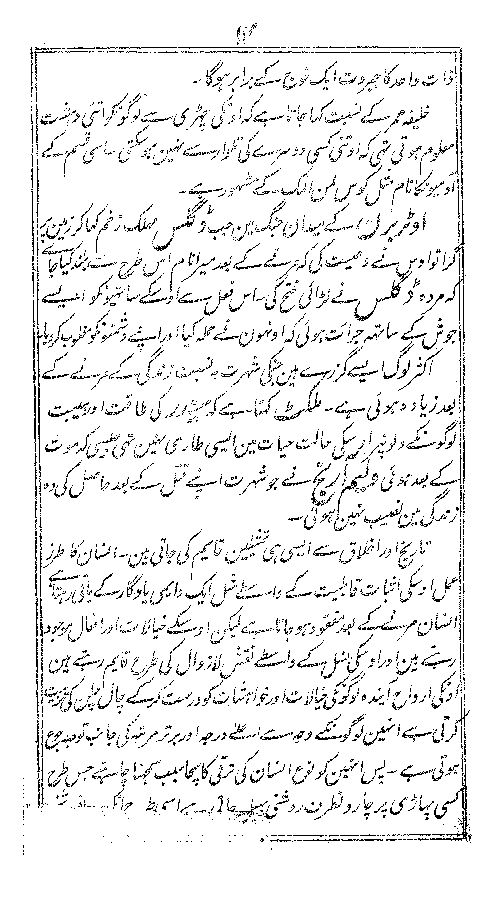 ذات واحد کا جبروت ایک فوج کے برابر ہوگا۔
خلیفہ عمر کے نسبت کہا جاتا ہے کہ اونکی چھڑی سے لوگونکو اتنی دہشت
معلوم ہوتی تھی کہ اوتنی کسی دوسرے کی تلوار سے نہین ہوسکتی۔ اسی قسم کے
آدمیونکا نام مثل کوس لمن الملک کے مشہور ہے۔
اوٹربرن کے میدان جنگ مین جب ڈگلس مہلک زخم کھا کر زمین پر
گرا تو اوس نے وصیت کی کہ مرنے کے بعد میرا نام اس طرح سے بلند کیا جائے
کہ مردہ ڈگلس نے لڑائی فتح کی۔ اس فعل سے اوسکے ساتھیونکو ایسے
جوش کے ساتھ جرات ہوئی کہ اونہون نے حملہ کیا اور اپنے دشمنونکو مغلوب کردیا۔
اکثر لوگ ایسے گزرے ہین جنکی شہرت بہ نسبت زندگی کے مرنے کے
بعد زیادہ ہوئی ہے۔ ملکٹ کہتا ہے کہ سیزر کی طاقت اور ہیبت
لوگونکے دلونپر اوسکی حالت حیات مین ایسی طاری نہین تھی جیسی کہ موت
کے بعد ہوئی ولیم آرنج نے جو شہرت اپنے قتل کے بعد حاصل کی وہ
زندگی مین نصیب نہین ہوئی۔
تاریخ اور اخلاق سے ایسی ہی تمثیلین قایم کی جاتی ہین۔ انسان کا طرز
عمل اوسکی اثبات قابلیت کے واسطے مثل ایک دایمی یادگار کے باقی رہتا ہے
انسان مرنے کے بعد مفقود ہوجاتا ہے لیکن اوسکے خیالات اور افعال موجود
رہتے ہین اور اوسکی نسل کے واسطے نقش لازوال کی طرح قایم رہتے ہین
اونکی ارواح آیندہ لوگونکی خیالات اور خواہشات کو درست کرکے چال چلن کی تربیت
کرتی ہے انہین لوگونکے وجہ سے اعلے درجہ اور برتر مرتبہ کی جانب توجہ رجوع
ہوتی ہے۔ پس انہین کو نوع انسان کی ترقی کا سچا سبب سمجھنا چاہئے جس طرح
کسی پہاڑی پر چارونطرف روشنی پھیل جاتی ہے اسی طرح